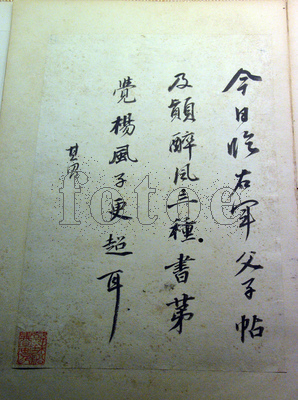 今日臨右軍父子帖
及顛醉風三種書第
覺楊風子更超耳
其昌
fotoe